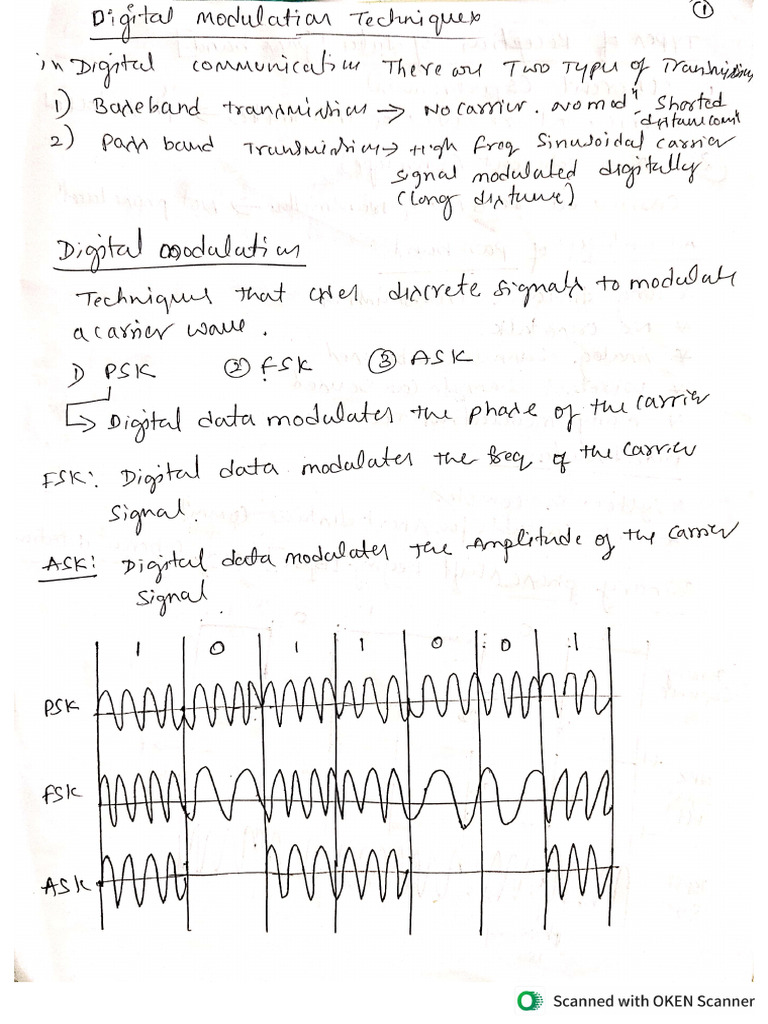 Digital Modulation Techniques
①
in Digital communication There are Two Types of Transmission
1) Baseband transmission → No carrier. No modⁿ Shorted
distance comt
2) Pass band Transmission → High freq Sinusoidal carrier
signal modulated digitally
(long distance)
Digital modulation
Techniques that uses discrete signals to modulate
a carrier wave.
1) PSK ② FSK ③ ASK
→ Digital data modulates the phase of the carrier
FSK: Digital data modulates the freq. of the carrier
signal.
ASK: Digital data modulates the Amplitude of the carrier
signal
1 0 1 1 0 0 1
PSK
FSK
ASK
Scanned with OKEN Scanner